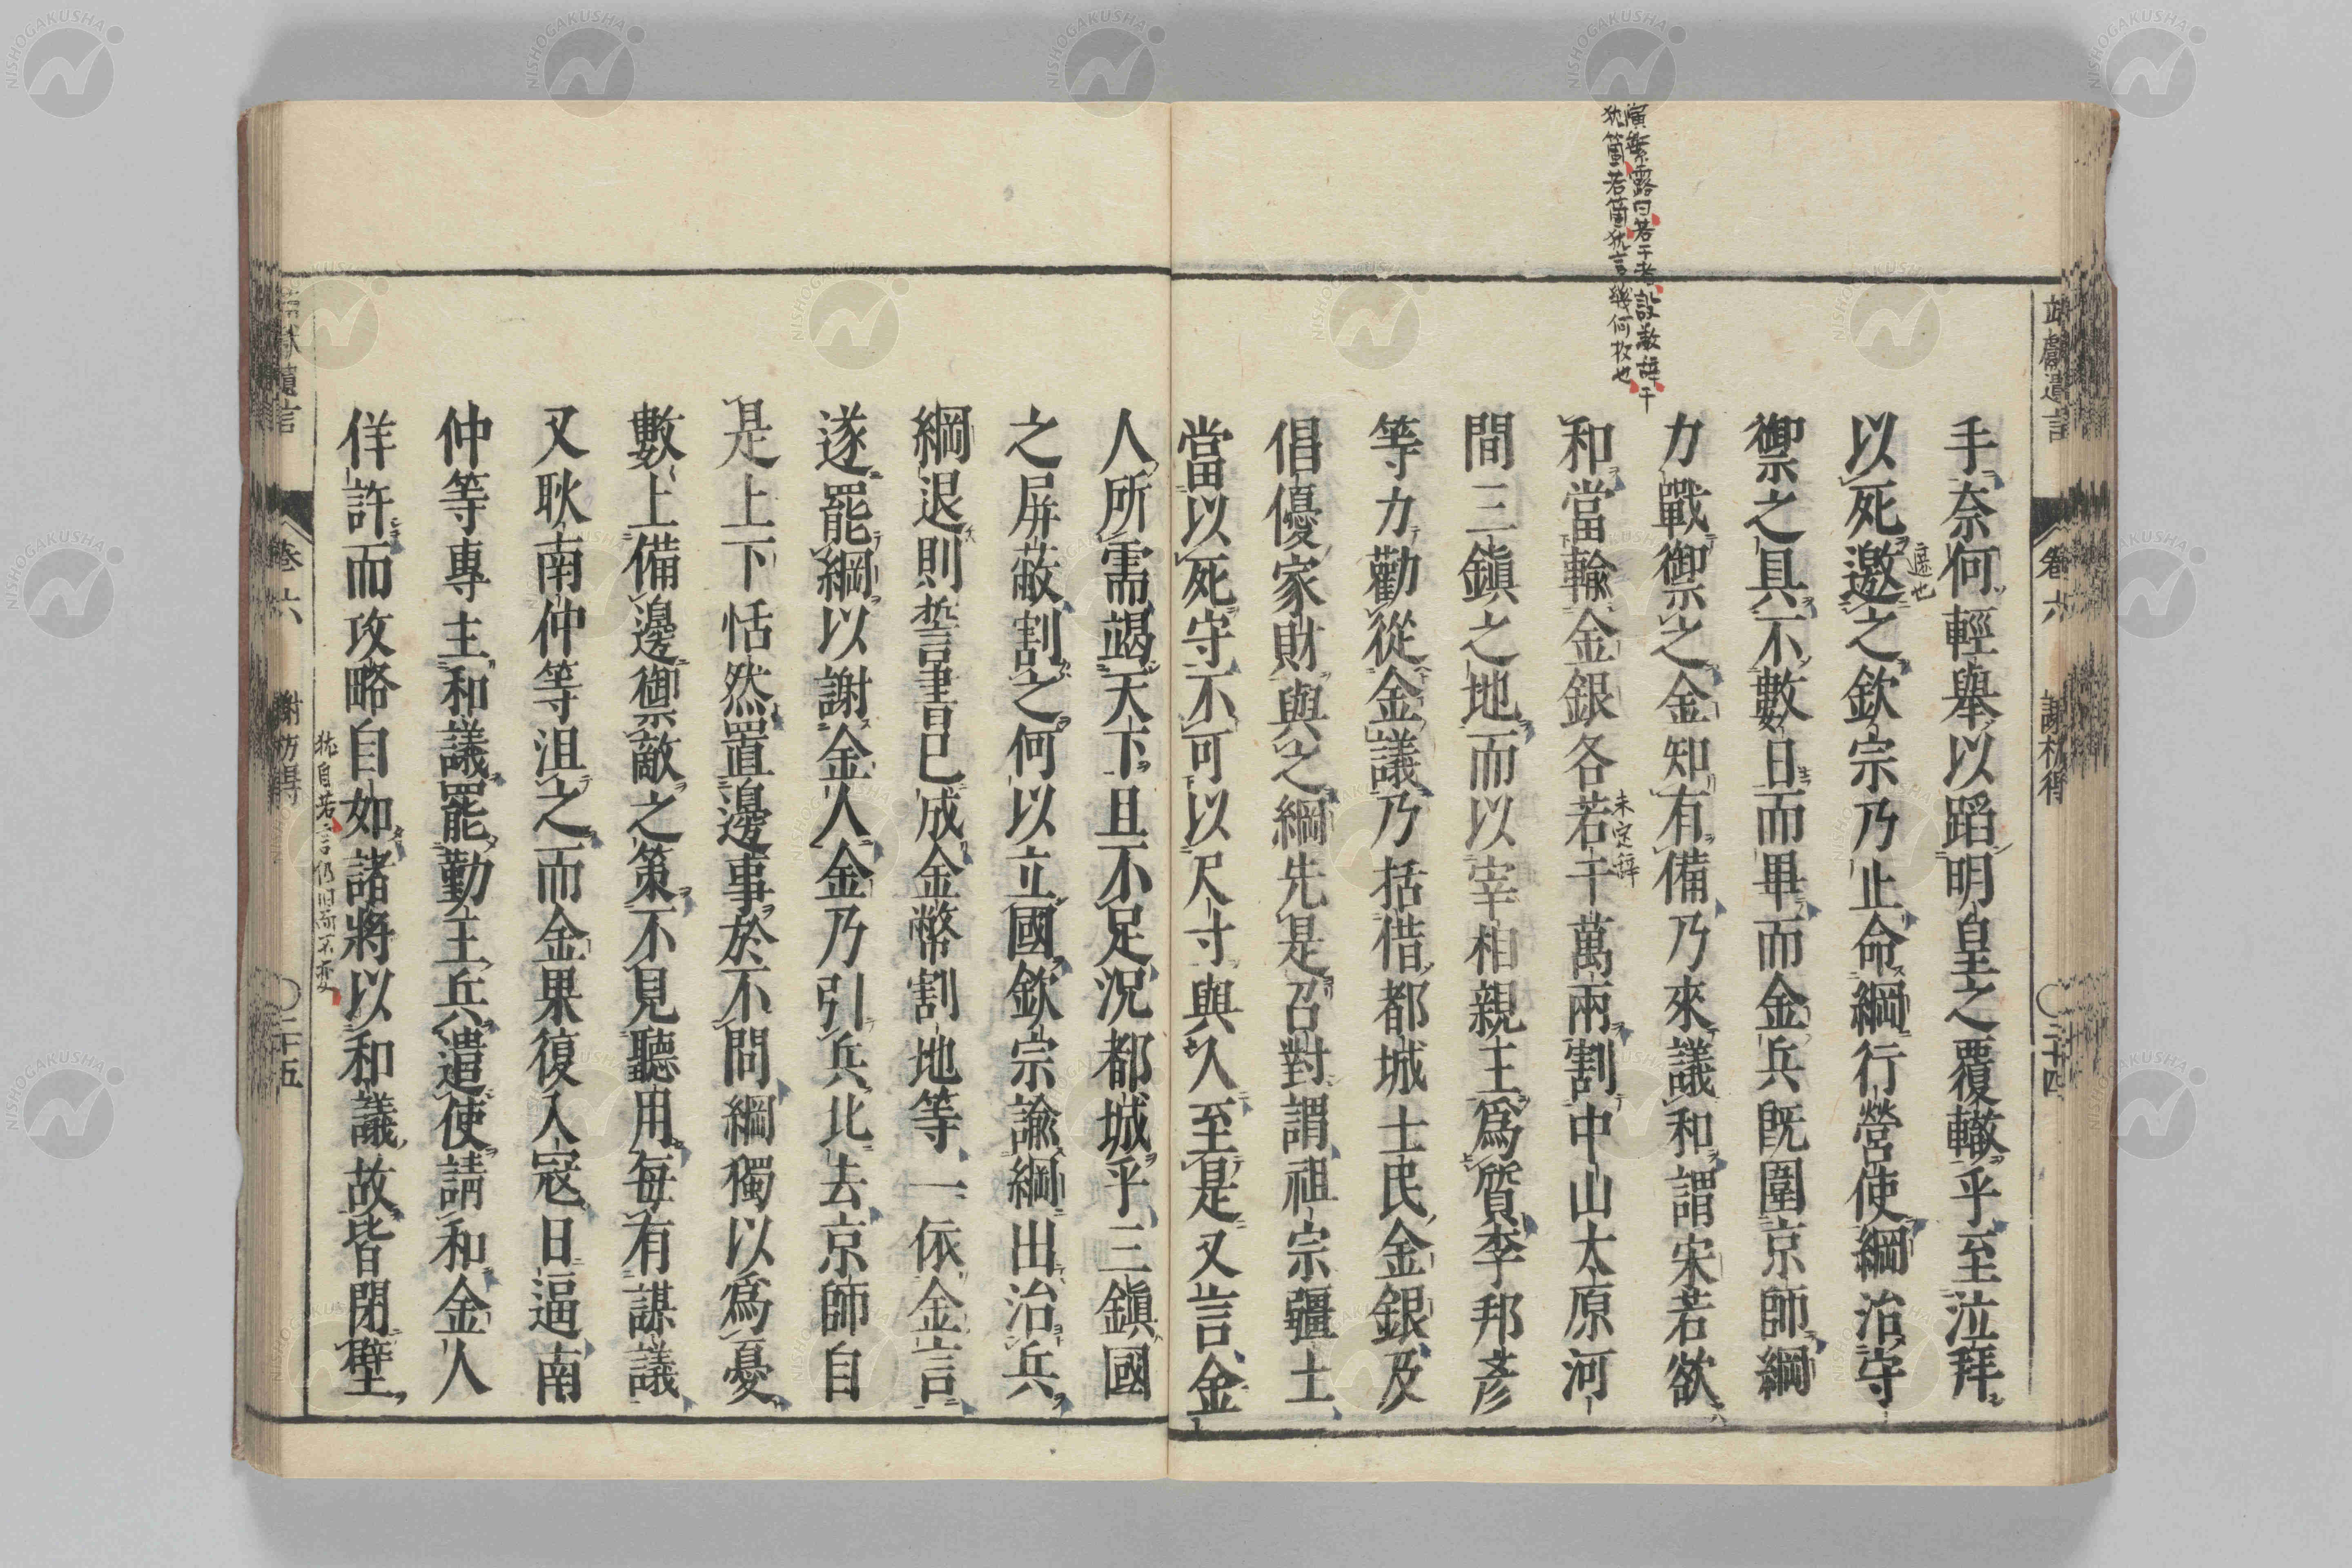 靖獻遺言 卷六 謝枋得 〇二十四
演繁露曰若干者設數辭干
猶箇若箇猶言幾何枚也
手奈何輕舉以蹈明皇之覆轍乎至泣拜
以死邀之欽宗乃止命綱行營使綱治守
遮也
禦之具不數日而畢而金兵既圍京師綱
力戰禦之金知有備乃來議和謂宋若欲
和當輸金銀各若干萬兩割中山太原河
未定辭
間三鎮之地而以宰相親王爲質李邦彥
等力勸從金議乃括借都城士民金銀及
倡優家財與之綱先是召對謂祖宗疆土
當以死守不可以尺寸與人至是又言金
人所需竭天下且不足況都城乎三鎮國
之屏蔽割之何以立國欽宗諭綱出治兵
綱退則誓書已成金幣割地等一依金言
遂罷綱以謝金人金乃引兵北去京師自
是上下恬然置邊事於不問綱獨以爲憂
數上備邊禦敵之策不見聽用每有謀議
又耿南仲等沮之而金果復入寇日逼南
仲等專主和議罷勤王兵遣使請和金人
佯許而攻略自如諸將以和議故皆閉壁
猶自若言仍旧而不変
靖獻遺言 卷六 謝枋得 〇二十五
NISHOGAKUSHA